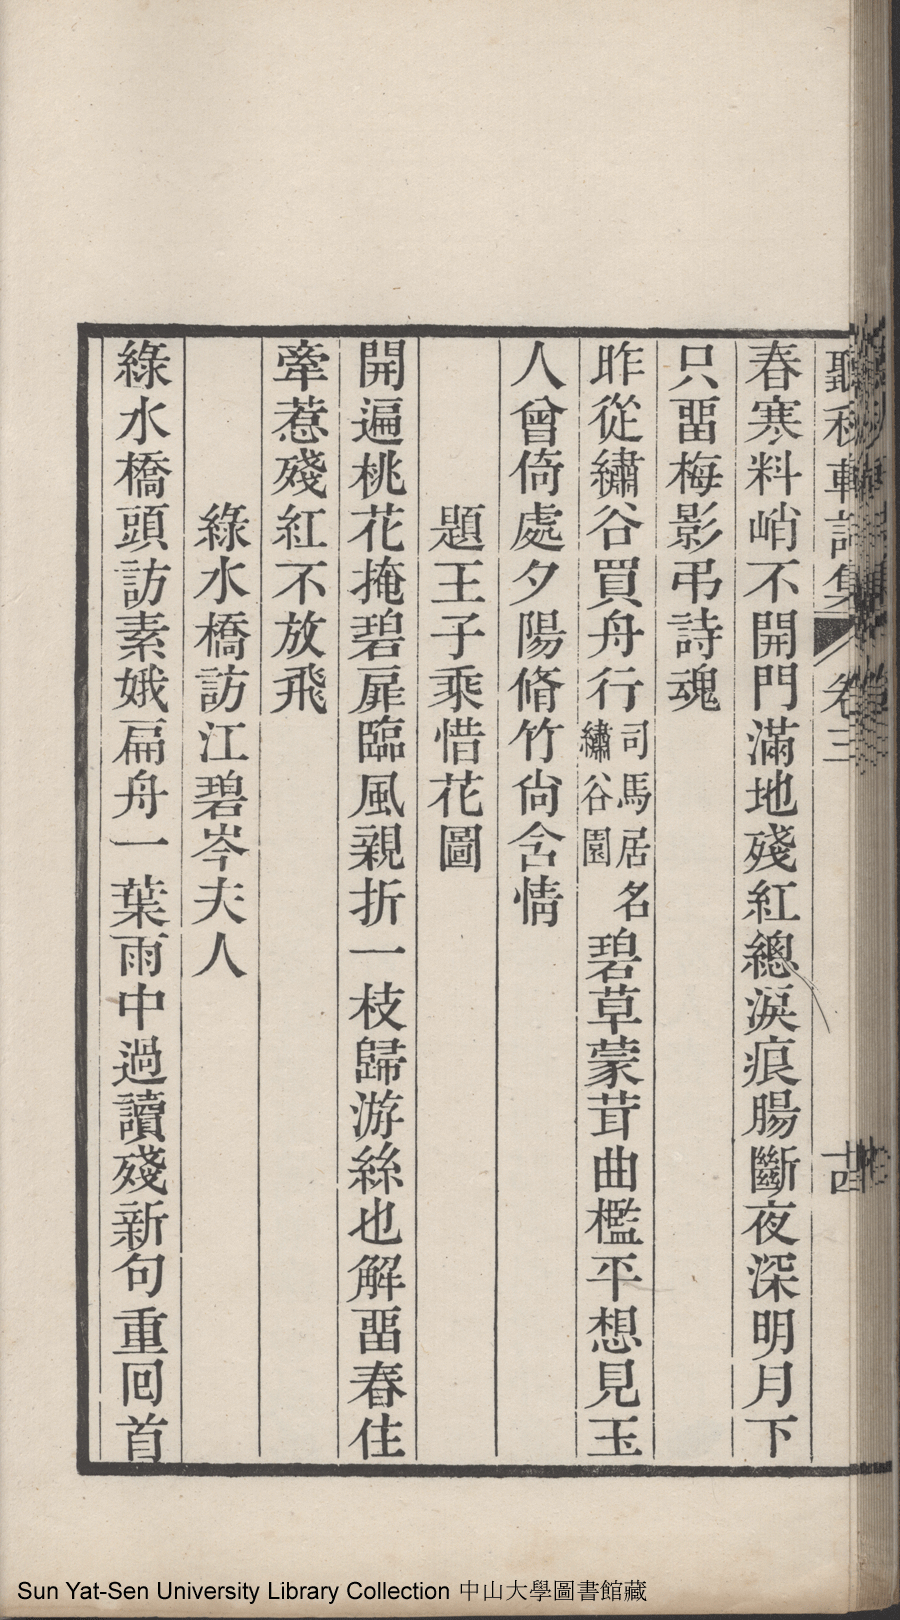 聽秋軒詩集 卷三 十四
春寒料峭不開門滿地殘紅總淚痕腸斷夜深明月下
只畱梅影弔詩魂
昨從繡谷買舟行司馬居名繡谷園碧草蒙茸曲檻平想見玉
人曾倚處夕陽脩竹尙含情
題王子乘惜花圖
開遍桃花掩碧扉臨風親折一枝歸游絲也解畱春住
牽惹殘紅不放飛
綠水橋訪江碧岑夫人
綠水橋頭訪素娥扁舟一葉雨中過讀殘新句重回首
Sun Yat-Sen University Library Collection 中山大學圖書館藏